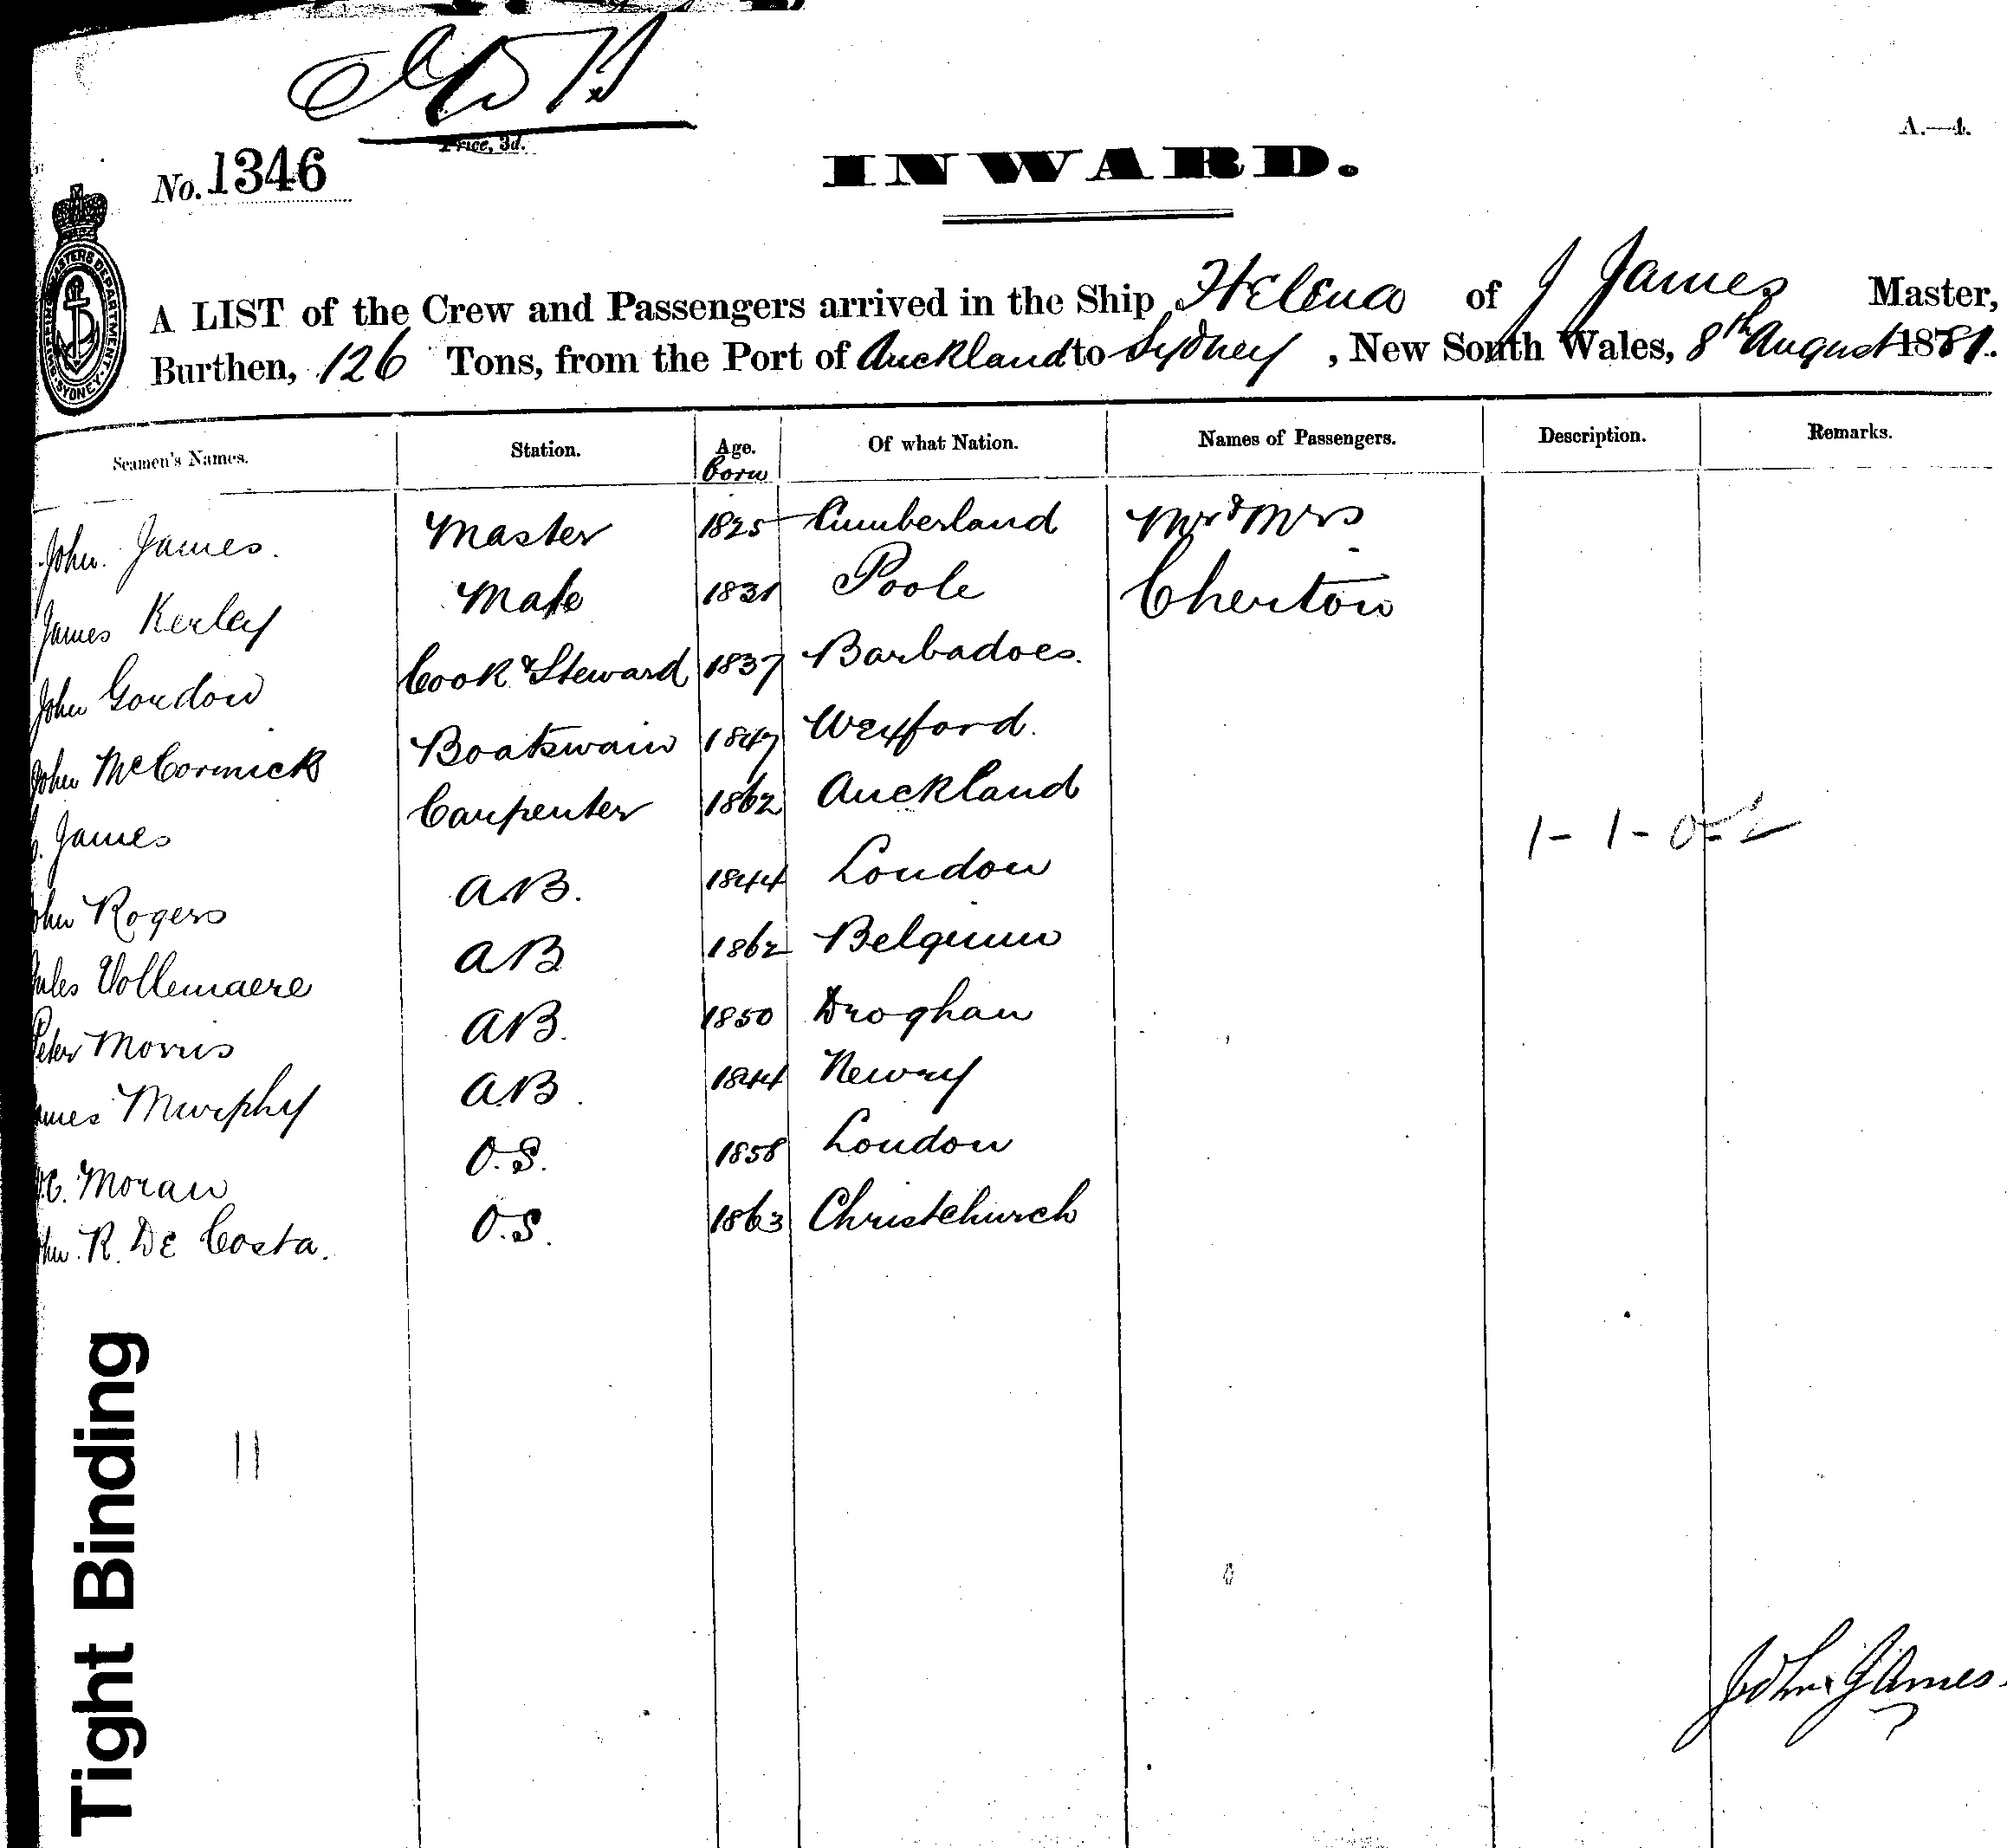 Price, 3d.
A.—4.
No. 1346
INWARD.
SHIPPING MASTERS DEPARTMENT. SYDNEY.
A LIST of the Crew and Passengers arrived in the Ship Helena of J James Master,
Burthen, 126 Tons, from the Port of Auckland to Sydney, New South Wales, 8th August 1881.
Seamen's Names. Station. Age. Of what Nation. Names of Passengers. Description. Remarks.
born
John James. Master 1825 Cumberland Mr & Mrs
James Kerley Mate 1831 Poole Cherton
John Gordon Cook & Steward 1837 Barbadoes.
John McCormick Boatswain 1847 Wexford.
James Carpenter 1862 Auckland
1 - 1 - 0 = 2
John Rogers A.B. 1844 London
Jules Vollemaere AB 1862 Belgium
Peter Morris AB. 1850 Droghan
James Murphy A.B. 1844 Newry
C. Moran O.S. 1858 London
John. R. De Costa. O.S. 1863 Christchurch
11
John James.
Tight Binding